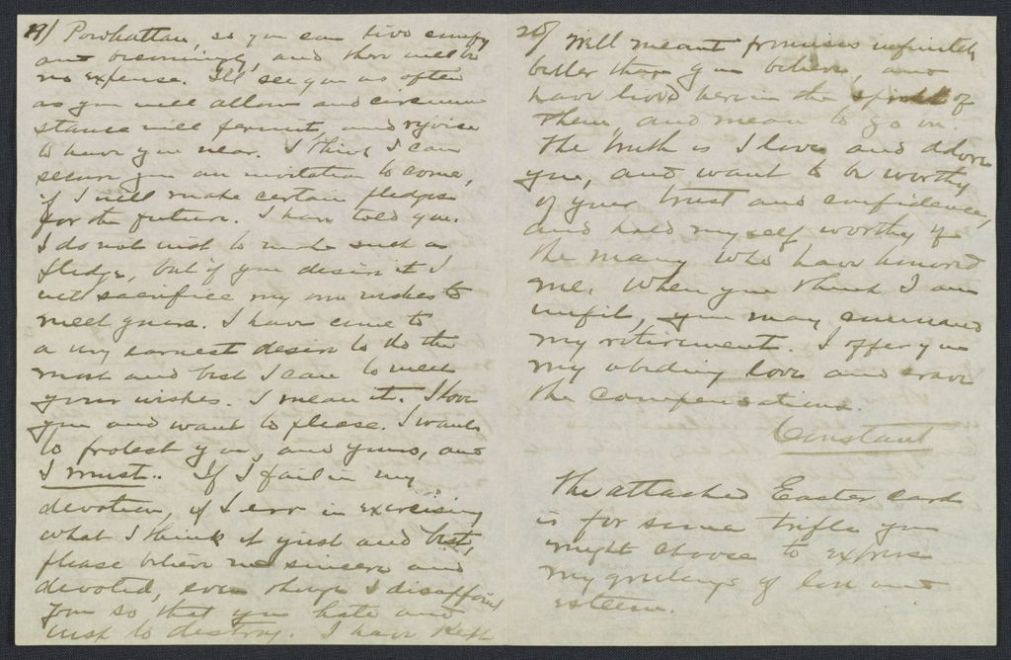 19/ Powhattan, so you can live comfy
and becomingly, and there will be
no expense. I'll see you as often
as you will allow and circum
stance will permit, and rejoice
to have you near. I think I can
secure you an invitation to come,
if I will make certain pledges
for the future. I have told you.
I do not wish to make such a
pledge, but if you desire it I
will sacrifice my own wishes to
meet yours. I have come to
a my earnest desire to do the
most and best I can to meet
your wishes. I mean it. I love
you and want to please. I want
to protect you, and yours, and
I must. If I fail in my
devotion, if I err in exercising
what I think is just and best,
please believe me sincere and
devoted, even though I disappoint
you so that you hate and
wish to destroy. I have kept
20/ Well meant promises infinitely
better than you believe, and
have lived here in the spirit of
them, and mean to go on.
The truth is I love and adore
you, and want to be worthy
of your trust and confidence,
and hold myself worthy of
the many who have honored
me. When you think I am
unfit, you may command
my retirement. I offer you
my abiding love and crave
the compensations.
Constant
The attached Easter card
is for some trifle you
might choose to express
my greetings of love and
esteem.